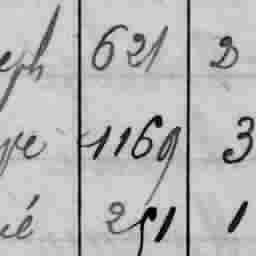 eph 621 2
re 1169 3
ié 251 1